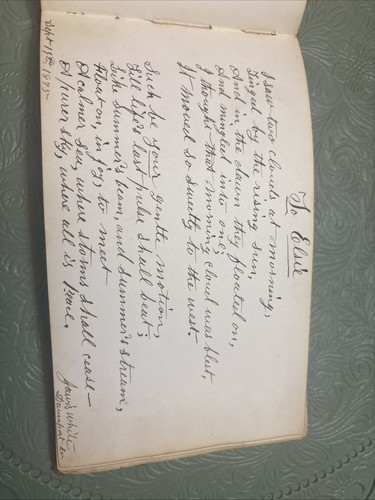 To Elsie
I saw two clouds at morning,
Tinged by the rising sun,
And in the dawn they floated on,
And mingled into one;
I thought that morning cloud was blest,
It moved so sweetly to the west.
Such be your gentle motion,
Till life's last pulse shall beat;
Like summer's beam, and summer's stream,
Float on, in joy, to meet
A calmer sea, where storms shall cease—
A purer sky, where all is Peace.
Sept 13th, 1875
White